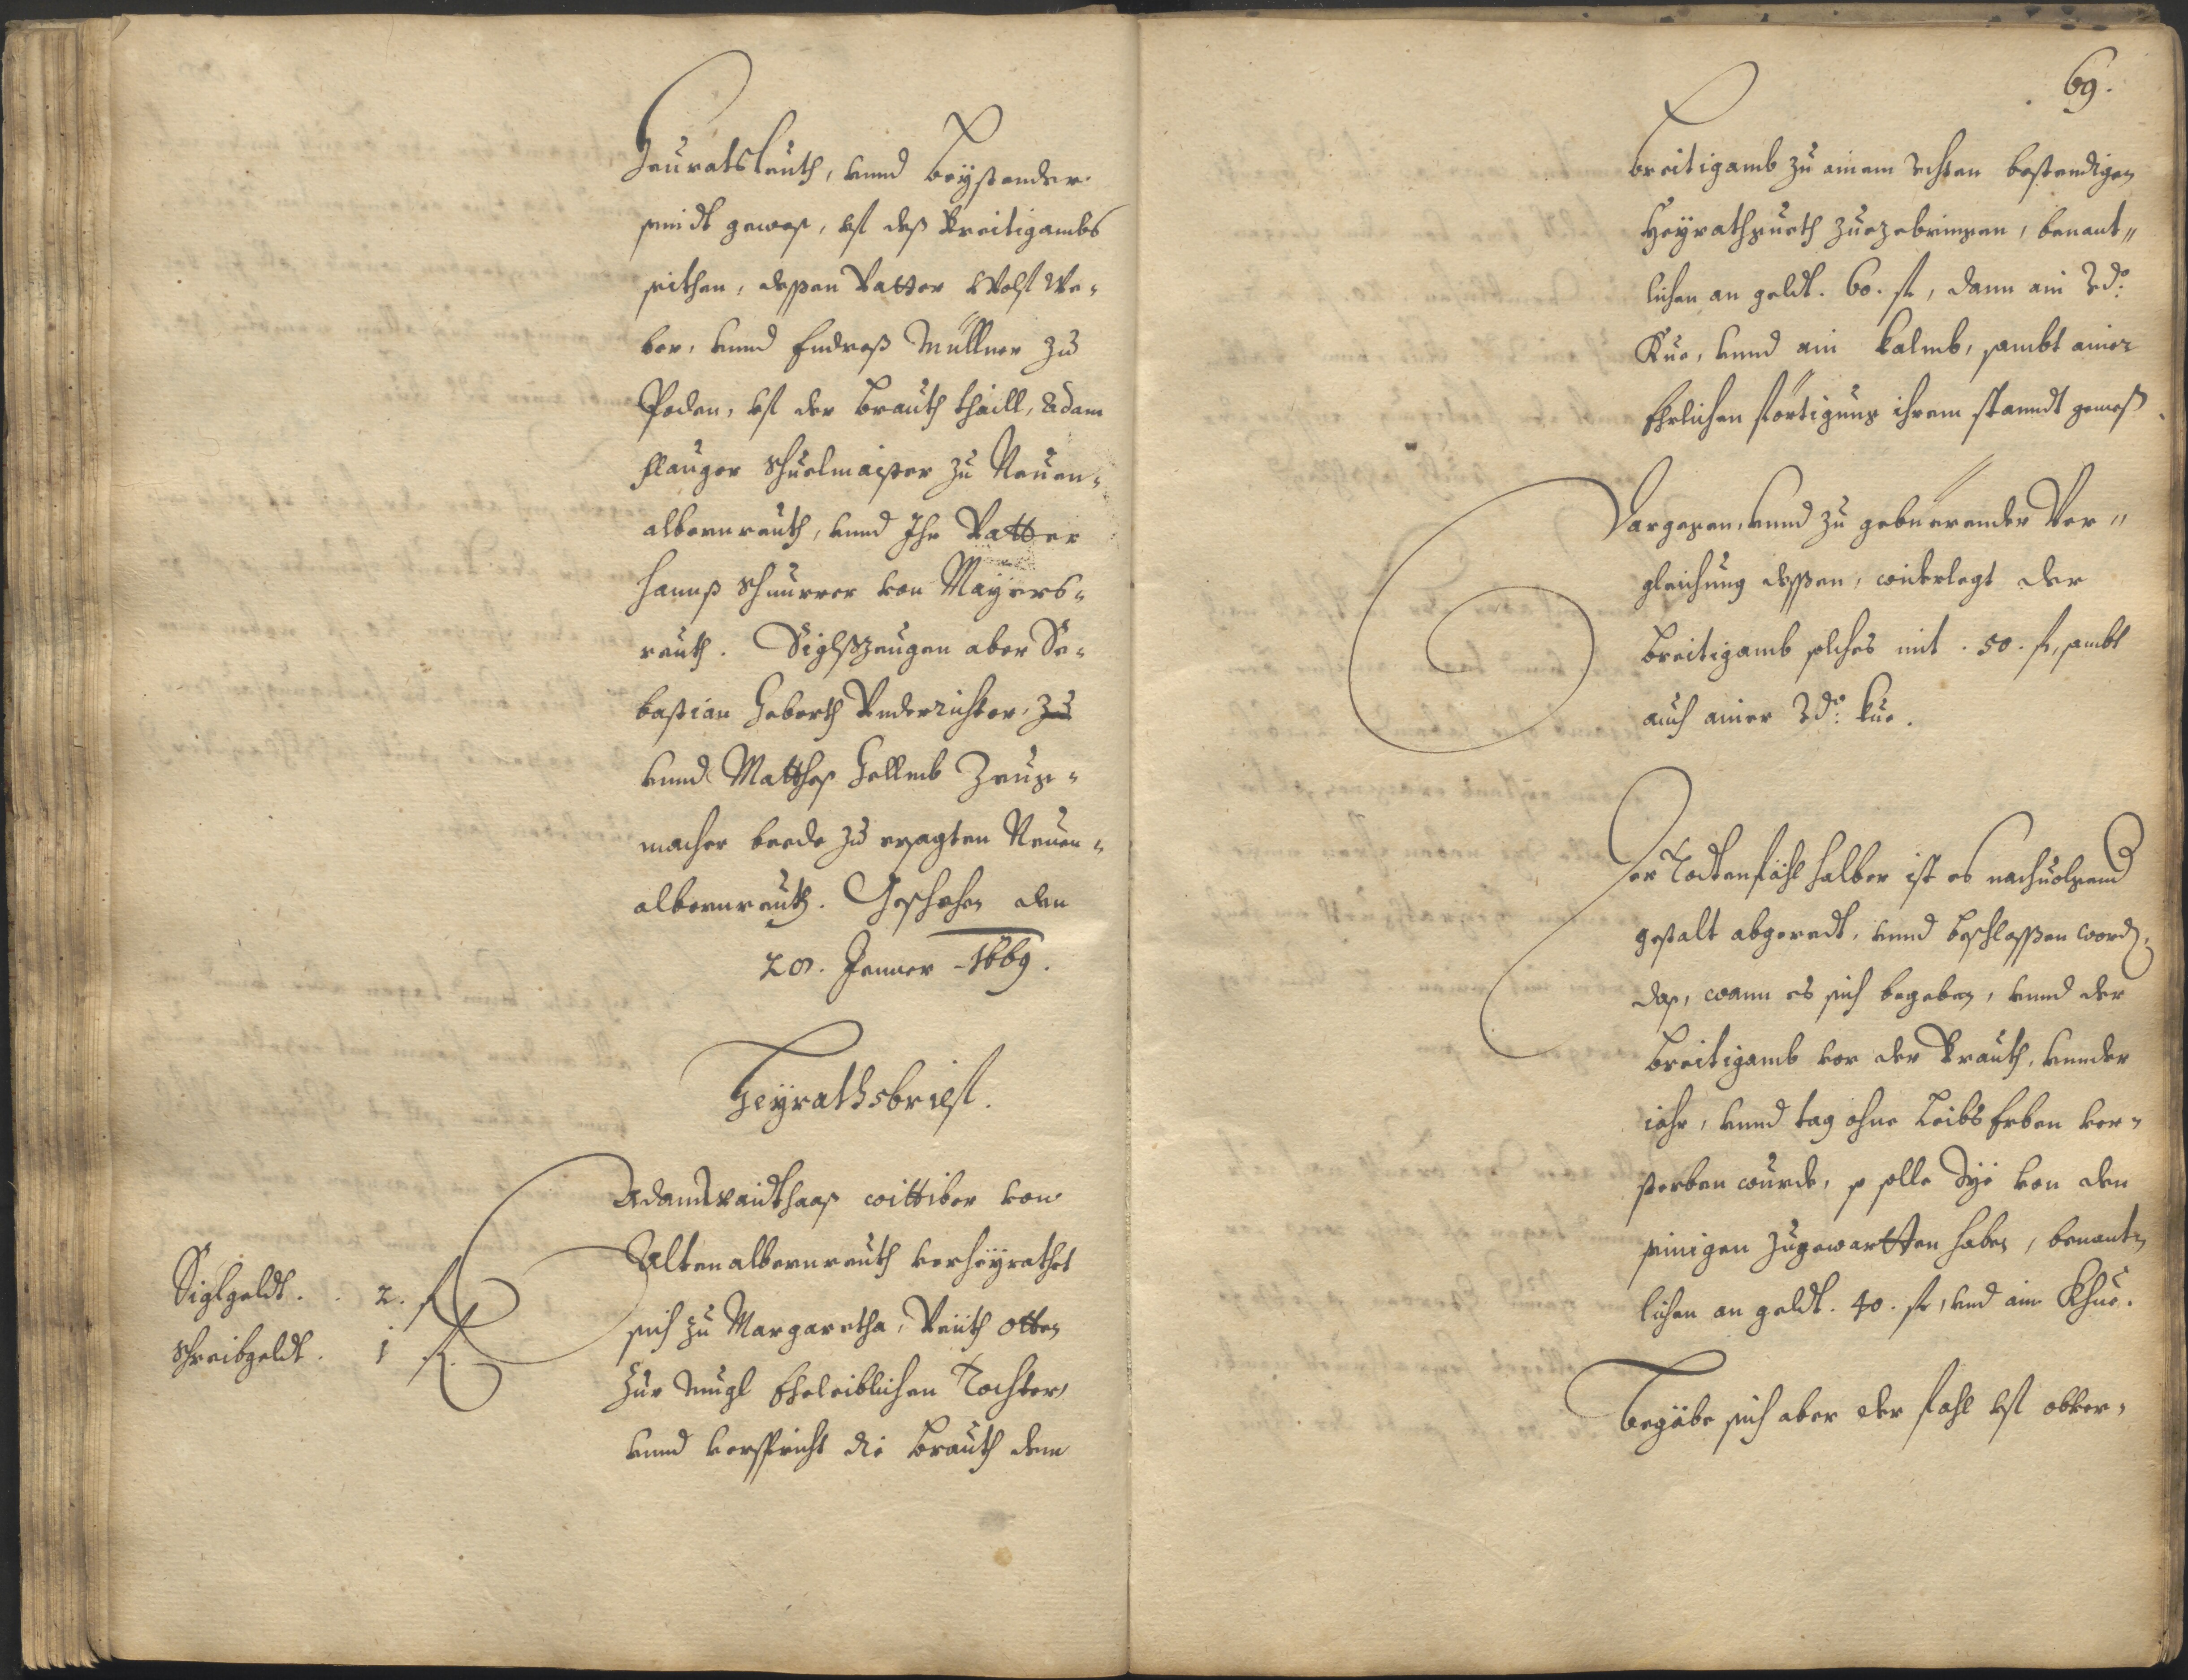 Heuratsleuth, vnnd Beystender
seindt gewest, vf deß Breitigambs
seithen, dessen Vatter Wolf We-
ber, vnnd Endreß Müllner zu
Poden, vf der Brauth thaill, Adam
schuelmaister zu Neuen-
albernreuth, vnnd Ihr Vatter
Hannß Schnurrer von Mayers-
reuth. Siglßzeugen aber Se-
bastian Haberth Vnderrichter, zu
vnnd Matthes Hellmb Zeug-
macher beede zu ersagten Neuen-
albernreuth. Geschehen den
28. Jenner 1669.
Heyrathsbrief.
Adam Waidthaaß wittiber von
Altenalbernreuth verheyrathet
sich zu Margaretha, Veith Otten
zur Mugl Eheleiblichen Tochter,
vnnd verspricht die Brauth dem
Siglgeldt. . 2. fl.
Schreibgeldt. 1 fl.
69.
Breitigamb zu einem rechten bestendigen
Heyrathgueth zuezebringen, benant-
lichen an geldt. 60. fl, dann ain Rdo:
Kue, vnnd ain kalmb, sambt ainer
Ehrlichen förtigung ihrem standt gemeß
Dargegen, vnnd zu gebuerender Ver-
gleichung dessen, widerlegt der
Breitigamb solches mit . 50. fl, sambt
auch ainer Rdo: kue.
Der Todtenfähl halber ist es nachuolgend
gestalt abgeredt, vnnd beschlossen word,
das, wann es sich begeben, vnnd der
Breitigamb vor der Brauth, vnnder
iahr, vnnd tag ohne Leibs Erben ver-
sterben wurde, so solle Sye von den
seinigen zugewartten haben, benant-
lichen an geldt. 40. fl, vnd ain Khue.
Begäbe sich aber der fahl vf obver-